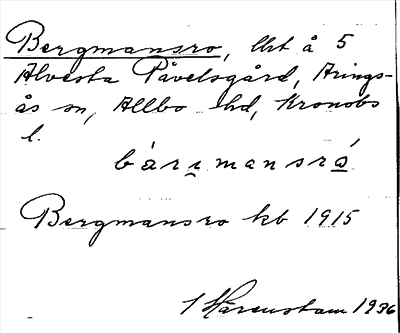 Bergmansro, lht å 5
Alvesta Påvelsgård, Arings-
ås sn, Allbo hd, Kronobs
l.
bárımansrá
Bergmansro kb 1915
1 Hårenstam 1936